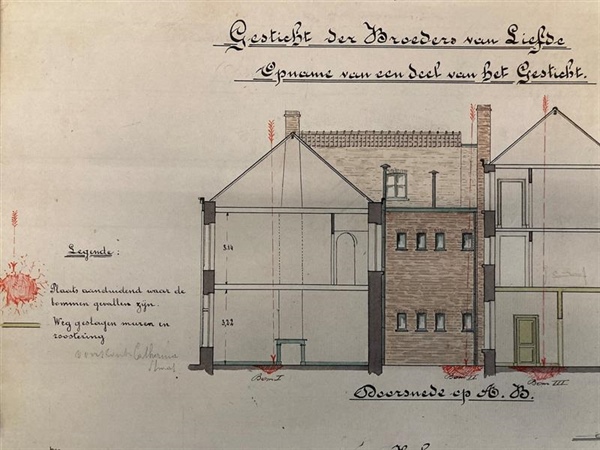 Gesticht der Broeders van Liefde
Opname van een deel van het Gesticht.
3.14
Legende:
Plaats aanduidend waar de
bommen gevallen zijn.
3,22
Weg geslagen muren en
roostering
Catharina
Bom I
Bom II
Bom III
Doorsnede op A. B.